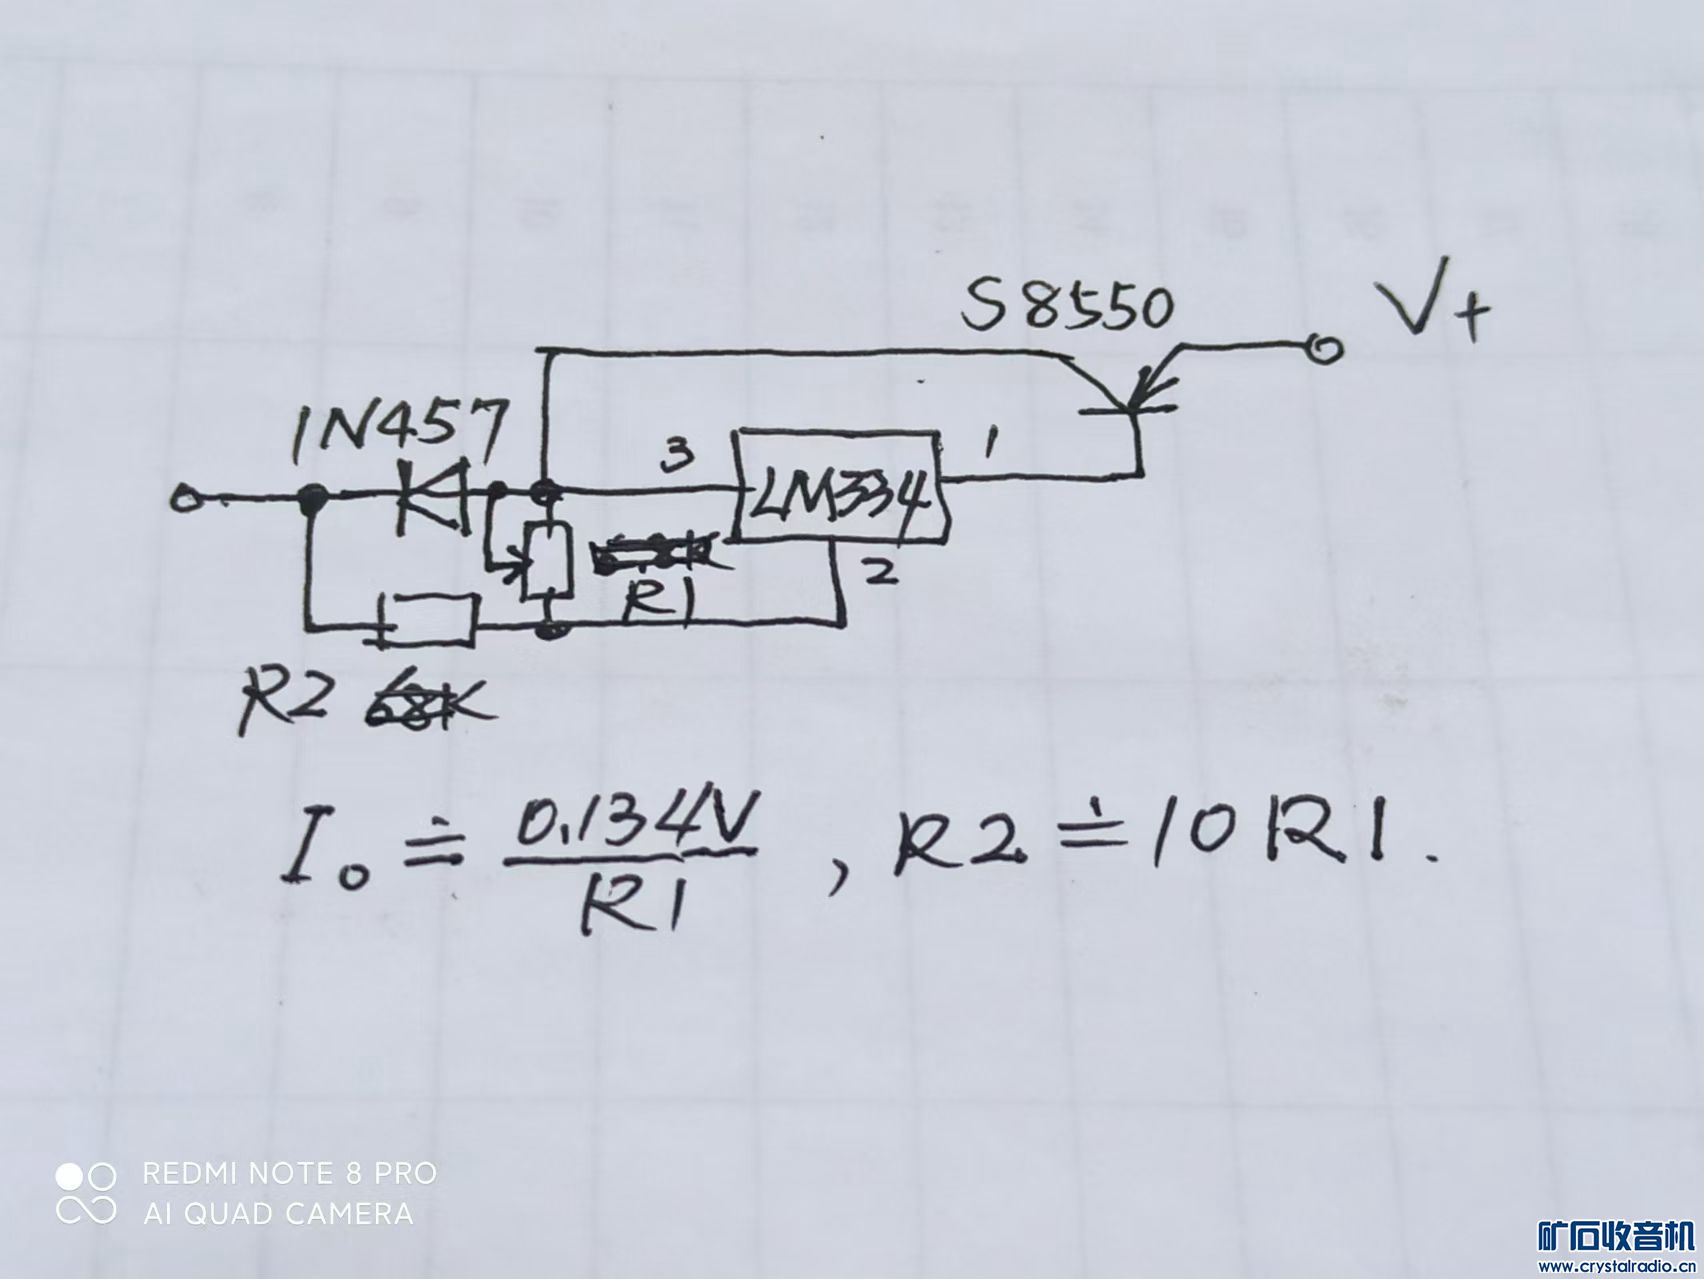 S8550
V+
1N457
3
1
LM334
2
R1
R2 68K
I₀ ≐ 0.134V / R1 , R2 ≐ 10R1.
REDMI NOTE 8 PRO
AI QUAD CAMERA
矿石收音机
www.crystalradio.cn